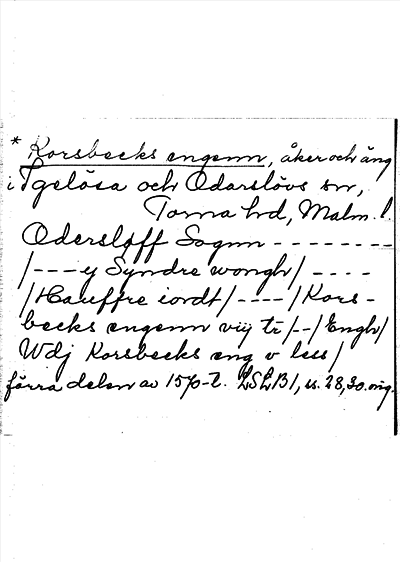 * Korsbecks engenn, åker och äng
i Igelösa och Odarslövs snr,
Torna hd, Malm. l.
Odersløff Sognn --------
/---y Syndre wongh/ ----
/Hauffre iordt/----/Kors-
becks engenn viij tr/--/Engh/
Wdj Korsbecks eng v less/
förra delen av 1570-t. LSLB1, s. 28,30. orig.